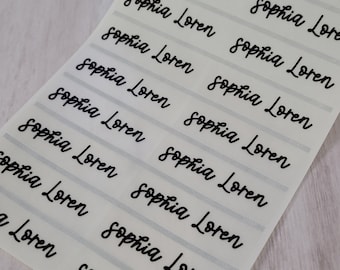 Sophia Loren
Sophia Loren
Sophia Loren
Sophia Loren
Sophia Loren
Sophia Loren
Sophia Loren
Sophia Loren
Sophia Loren
Sophia Loren
Sophia Loren
Loren
Sophia Loren
sophia